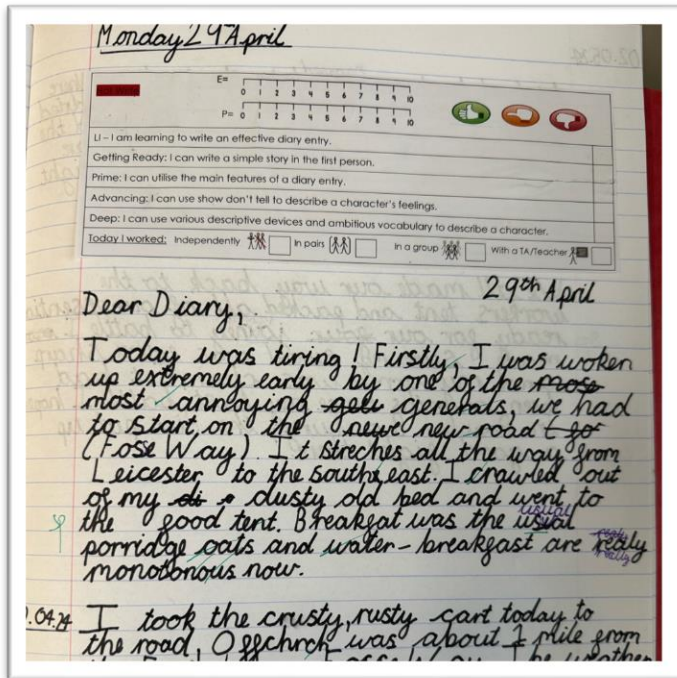 Monday 29th April
E= 0 1 2 3 4 5 6 7 8 9 10
P= 0 1 2 3 4 5 6 7 8 9 10
LI – I am learning to write an effective diary entry.
Getting Ready: I can write a simple story in the first person.
Prime: I can utilise the main features of a diary entry.
Advancing: I can use show don't tell to describe a character's feelings.
Deep: I can use various descriptive devices and ambitious vocabulary to describe a character.
Today I worked: Independently In pairs In a group With a TA/Teacher
29th April
Dear Diary,
Today was tiring! Firstly, I was woken
up extremely early by one of the mose
most annoying gen generals, we had
to start on the newe new road
(Fose Way). It streches all the way from
Leicester to the south east. I crawled out
of my dusty old bed and went to
usual
the food tent. Breakfat was the usual
porridge oats and water - breakfast are realy
really
monotonous now.
I took the crusty, rusty cart today to
the road, Offchrch was about 1 mile from